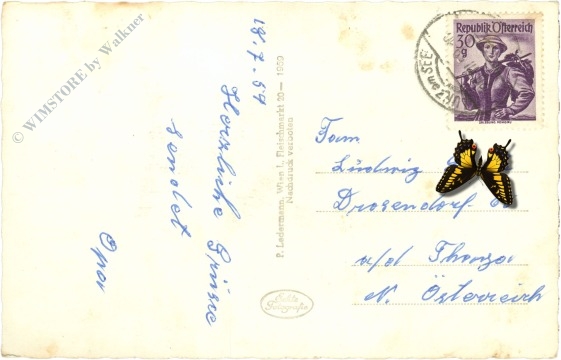 © WIMSTORE by Walkner
18.7.59
Herzliche Grüsse
sendet
Opa
P. Ledermann, Wien I., Fleischmarkt 20 — 1959
Nachdruck verboten
Echte
Fotografie
Republik Österreich
30
g
am SEE
Fam
Ludwig
Drosendorf
a/d Thaya
N. Österreich